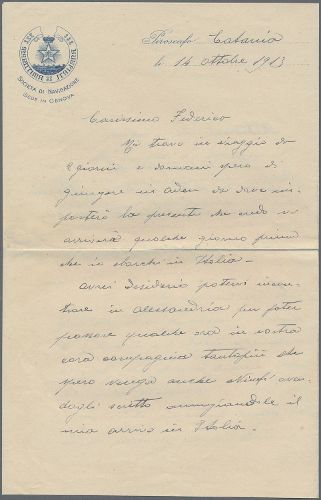 SOCIETÀ DI NAVIGAZIONE
SEDE IN GENOVA
Piroscafo Catania
li 14 Ottobre 1913
Carissimo Federico
Mi trovo in viaggio da
giorni e domani spero di
giungere in Aden da dove im-
posterò la presente che credo vi
arriverà qualche giorno prima
che io sbarchi in Italia -
avrei desiderio potervi incon-
trare in Alessandria per poter
passare qualche ora in vostra
cara compagnia tantopiù che
spero venga anche aven-
dogli scritto annunziandole il
mio arrivo in Italia.